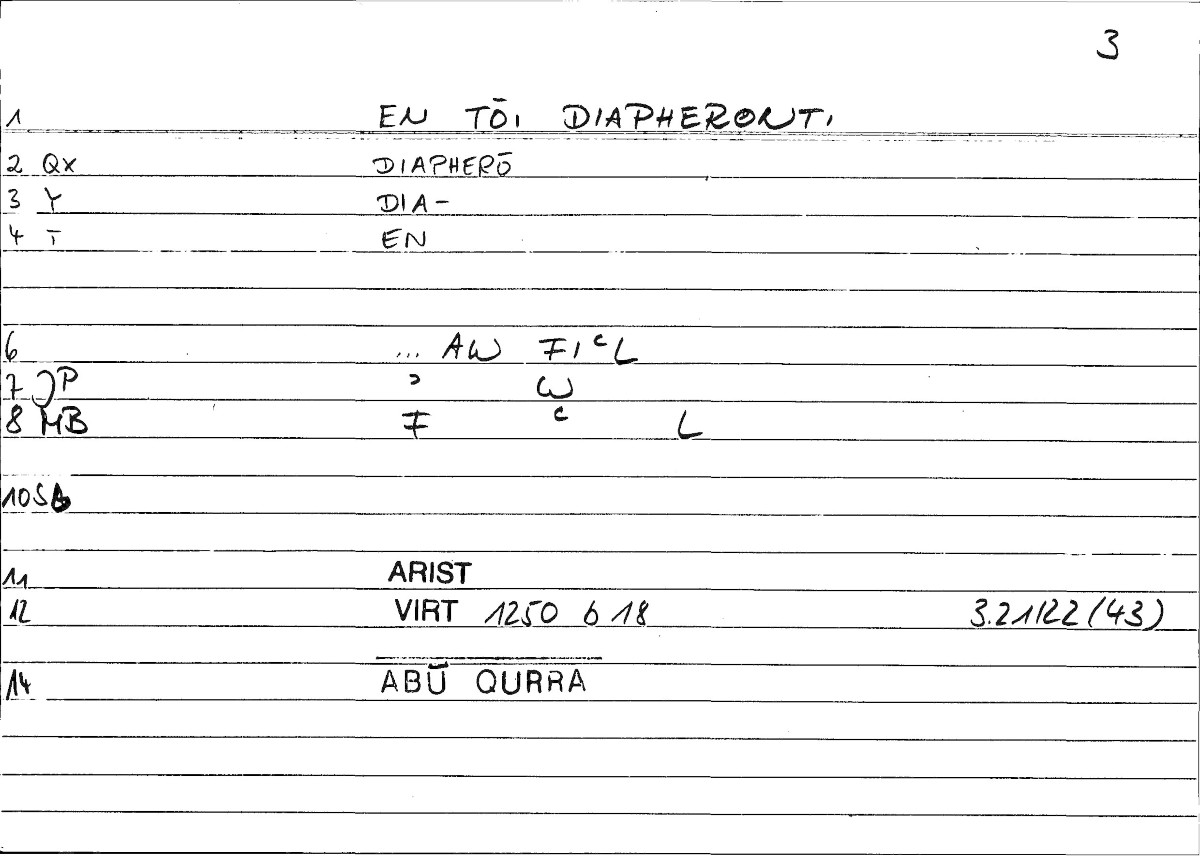 3
1 EN TŌI DIAPHERONTI
2 QX DIAPHERŌ
3 Y DIA-
4 T EN
6 ... AW FIᶜL
7 JP ʾ W
8 MB F ᶜ L
10
11 ARIST
12 VIRT 1250 b 18 3.21/22 (43)
14 ABŪ QURRA